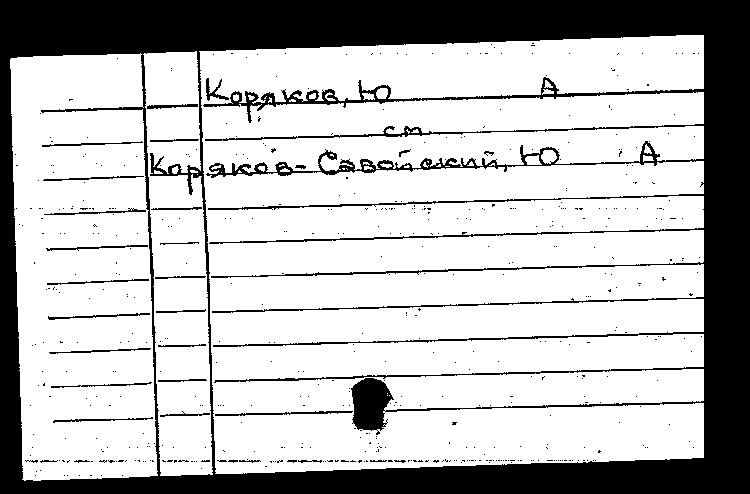 Коряков, Ю А
см
Коряков-Савойский, Ю А